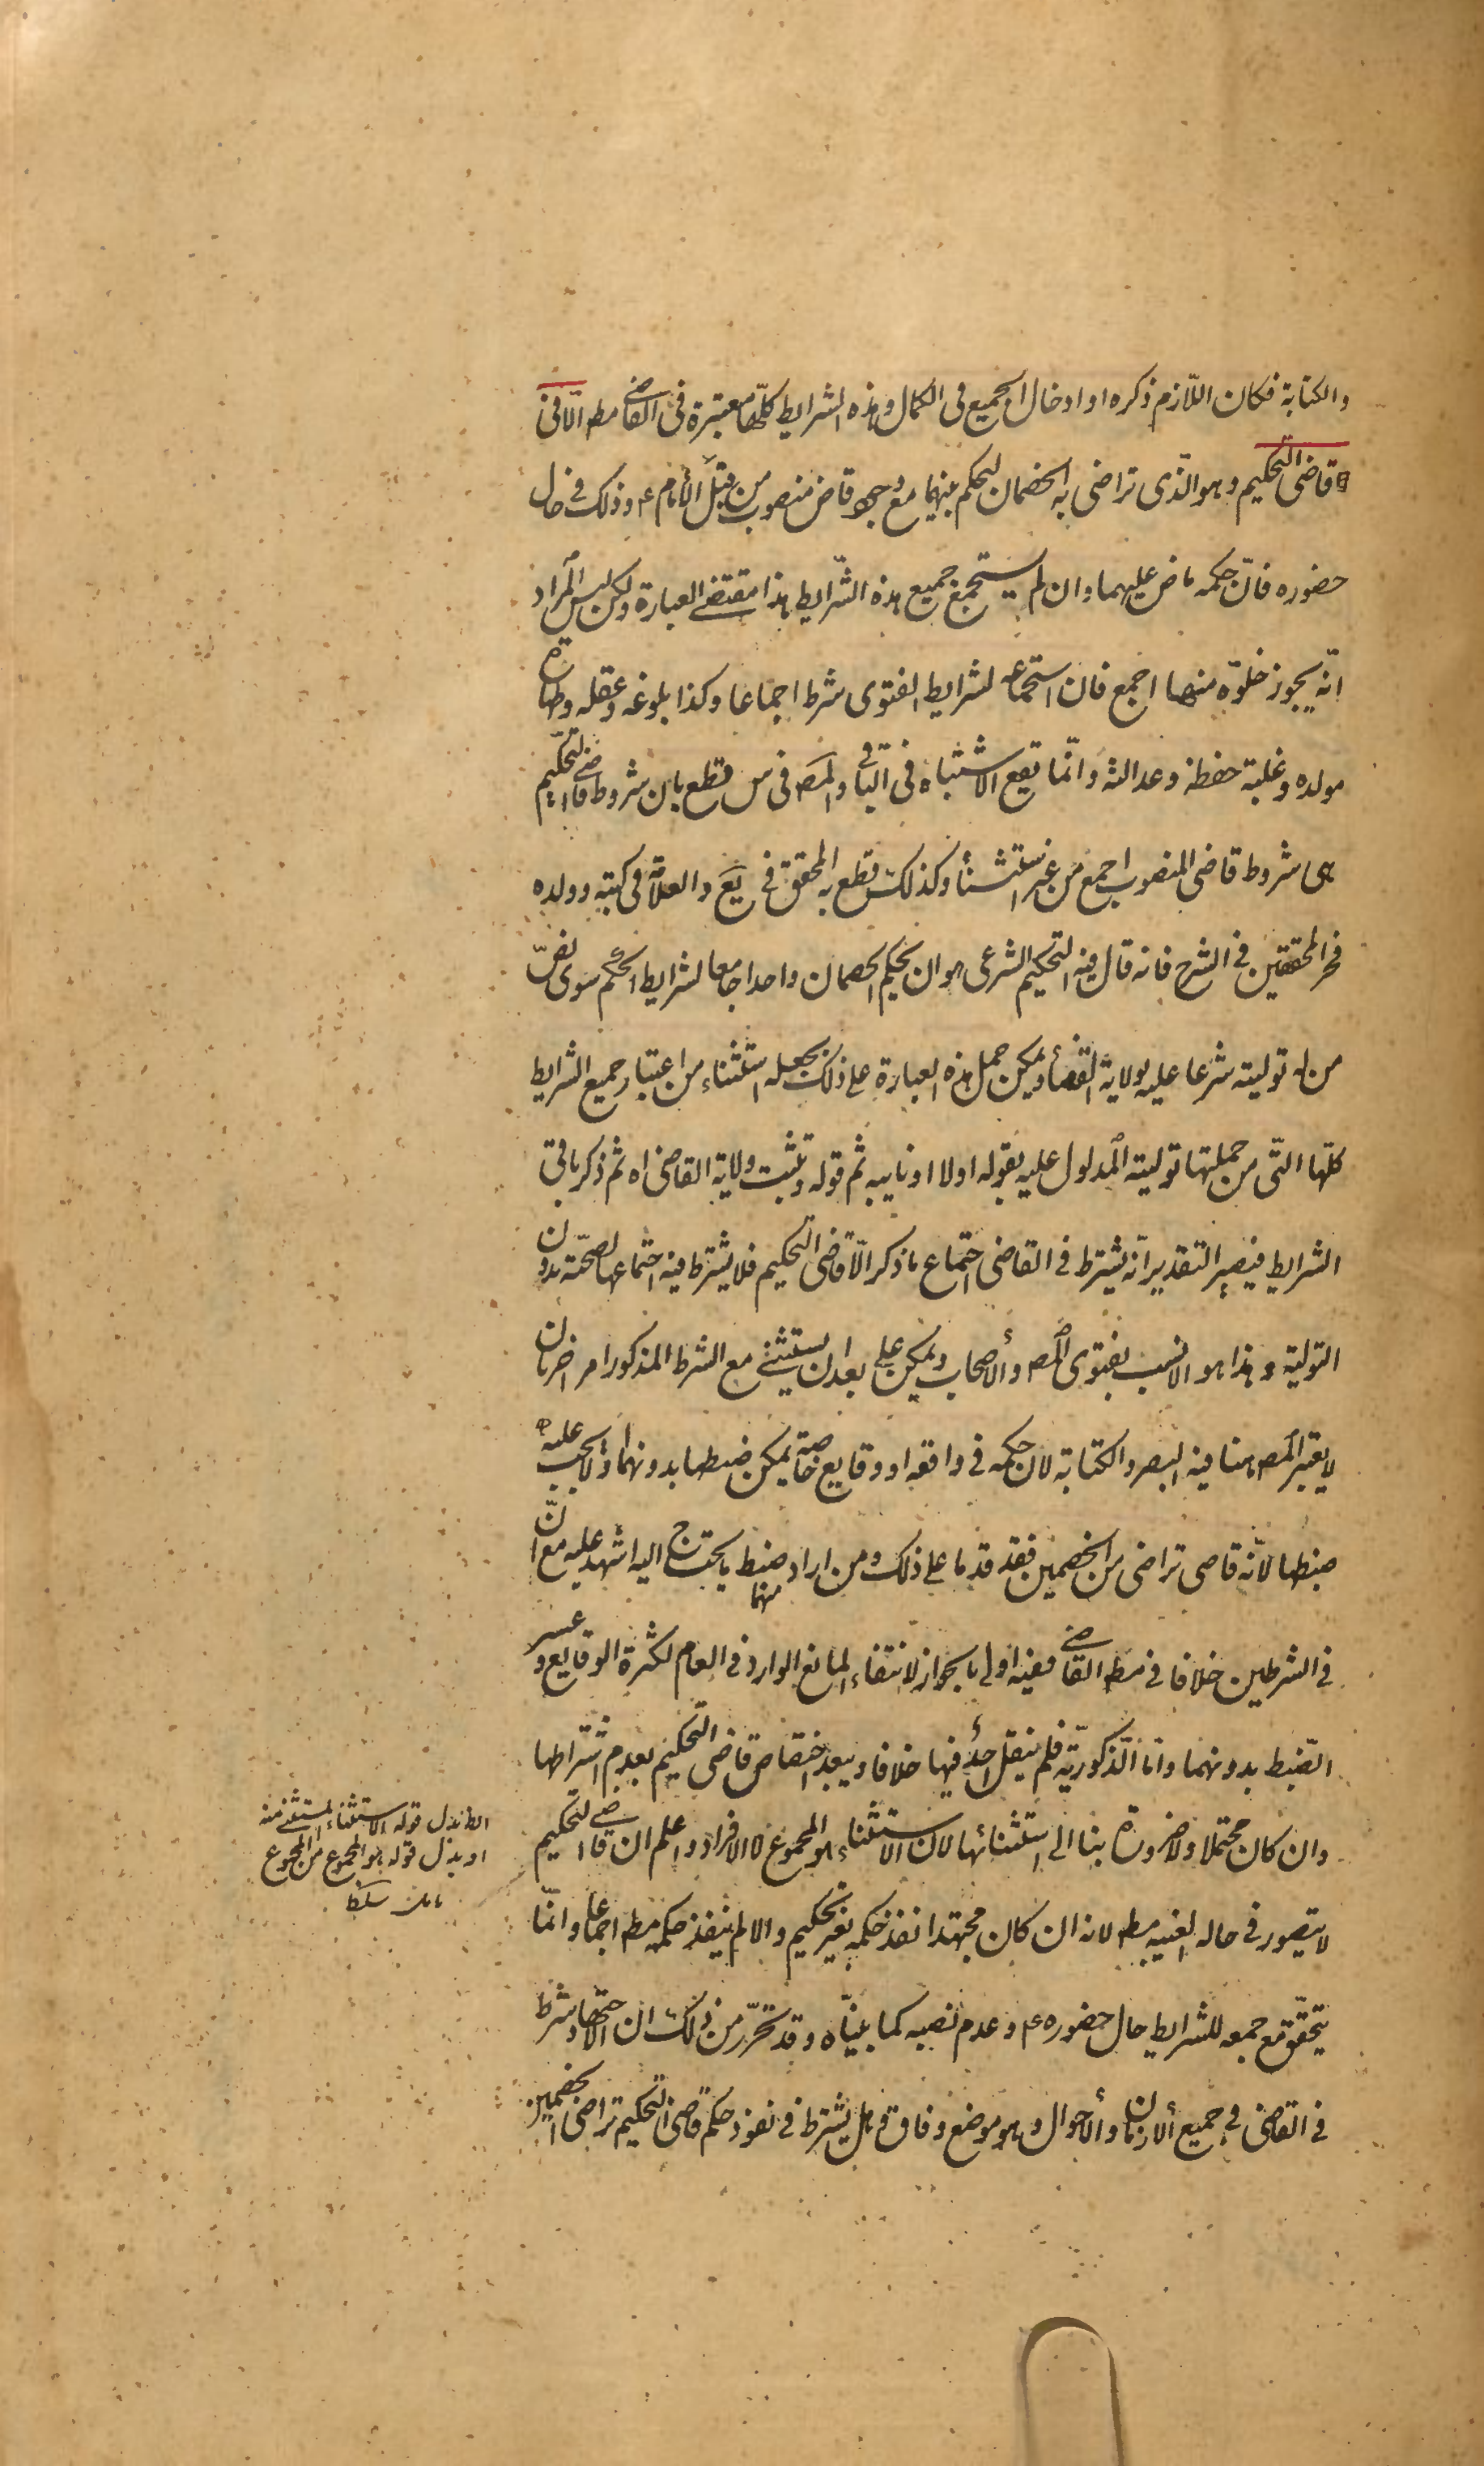 والكتابة فكان اللّازم ذكره او ادخال الجميع فى الكمال وهذه الشرايط كلّها معتبرة فى القاضى مط الّا فى
قاضى التحكيم وهو الّذى تراضى به الخصمان ليحكم بينهما مع وجود قاض منصوب من قبل الأمام ع وذلك فى حال
حضوره فانّ حكمه ماض عليهما وان لم يستجمع جميع هذه الشّرايط هذا مقتضى العبارة ولكن ليس المراد
انّه يجوز خلوّه منها اجمع فان استجماعه لشرايط الفتوى شرط اجماعا وكذا بلوغه وعقله وطهارة
مولده وغلبة حفظه وعدالته وانّما تقع الاشتباه فى الباقى والمص فى س قطع بان شروط قاضى التحكيم
هى شروط قاضى المنصوب اجمع من غير استثناء وكذلك قطع به المحقق فى يع والعلّامة فى كتبه وولده
فخر المحققين فى الشرح فانه قال فيه التحكيم الشرعى هو ان يحكيم الخصمان واحدا جامعا لشرايط الحكم سوى نصّ
من له توليته شرعا عليه بولاية القضاء ويمكن حمل هذه العبارة على ذلك بجعله استثناء من اعتبار جميع الشرايط
كلّها التّى من جملتها توليته المدلول عليه بقوله اولا او نايبه ثم قوله وتثبت ولاية القاضى اه ثم ذكر باقى
الشرايط فيصير التقدير انّه يشترط فى القاضى اجتماع ما ذكر الّا قاضى التحكيم فلا يشترط فيه اجتماعها لصحّته بدون
التولية وهذا هو الانسب بفتوى المص والأصحاب ويمكن على بعد ان يستثنى مع الشرط المذكور امر اخر بان
لا يعتبر المص هنا فيه البصر والكتابة لان حكمه فى واقعه او وقايع خاصة يمكن ضبطها بدونهما او لا يجب عليه
ضبطها لانّه قاضى تراضى من الخصمين فقد قدما على ذلك ومن اراد منهما ضبط ما يحتاج اليه اشهد عليه مع انّ
فى الشرطين خلافا فى مط القاضى ففيه اولى بالجواز لانتفاء المانع الوارد فى العام لكثرة الوقايع وعسر
الضّبط بدونهما وامّا الذّكوريّة فلم ينقل احدٌ فيها خلافا ويبعد اختصاص قاضى التحكيم بعدم اشتراطها
وان كان محتملا ولا ضرورة بنا الى استثنائها لان الاستثناء هو المجموع لا الافراد واعلم ان قاضى التحكيم
لا يتصور فى حاله الغيبه مط لانه ان كان مجتهدا نفذ حكمه بغير تحكيم والا لم ينفذ حكمه مط اجماعا وانّما
يتحقّق مع جمعه للشرايط حال حضوره ع وعدم نصبه كما بيّناه وقد تحرّر من ذلك ان الاجتهاد شرط
فى القاضى فى جميع الأزمان والأحوال وهو موضع وفاق وهل يشترط فى نفوذ حكم قاضى التحكيم تراضى الخصمين
بدل قوله الاستثناء المستثنى منه
او بدل قوله هو المجموع من المجموع